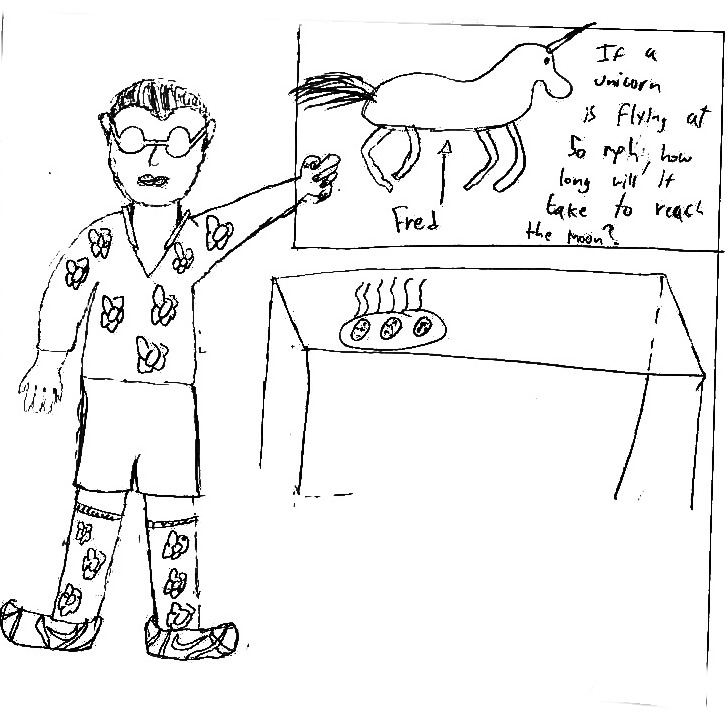 If a
unicorn
is flying at
50 mph, how
long will it
take to reach
the moon?
Fred